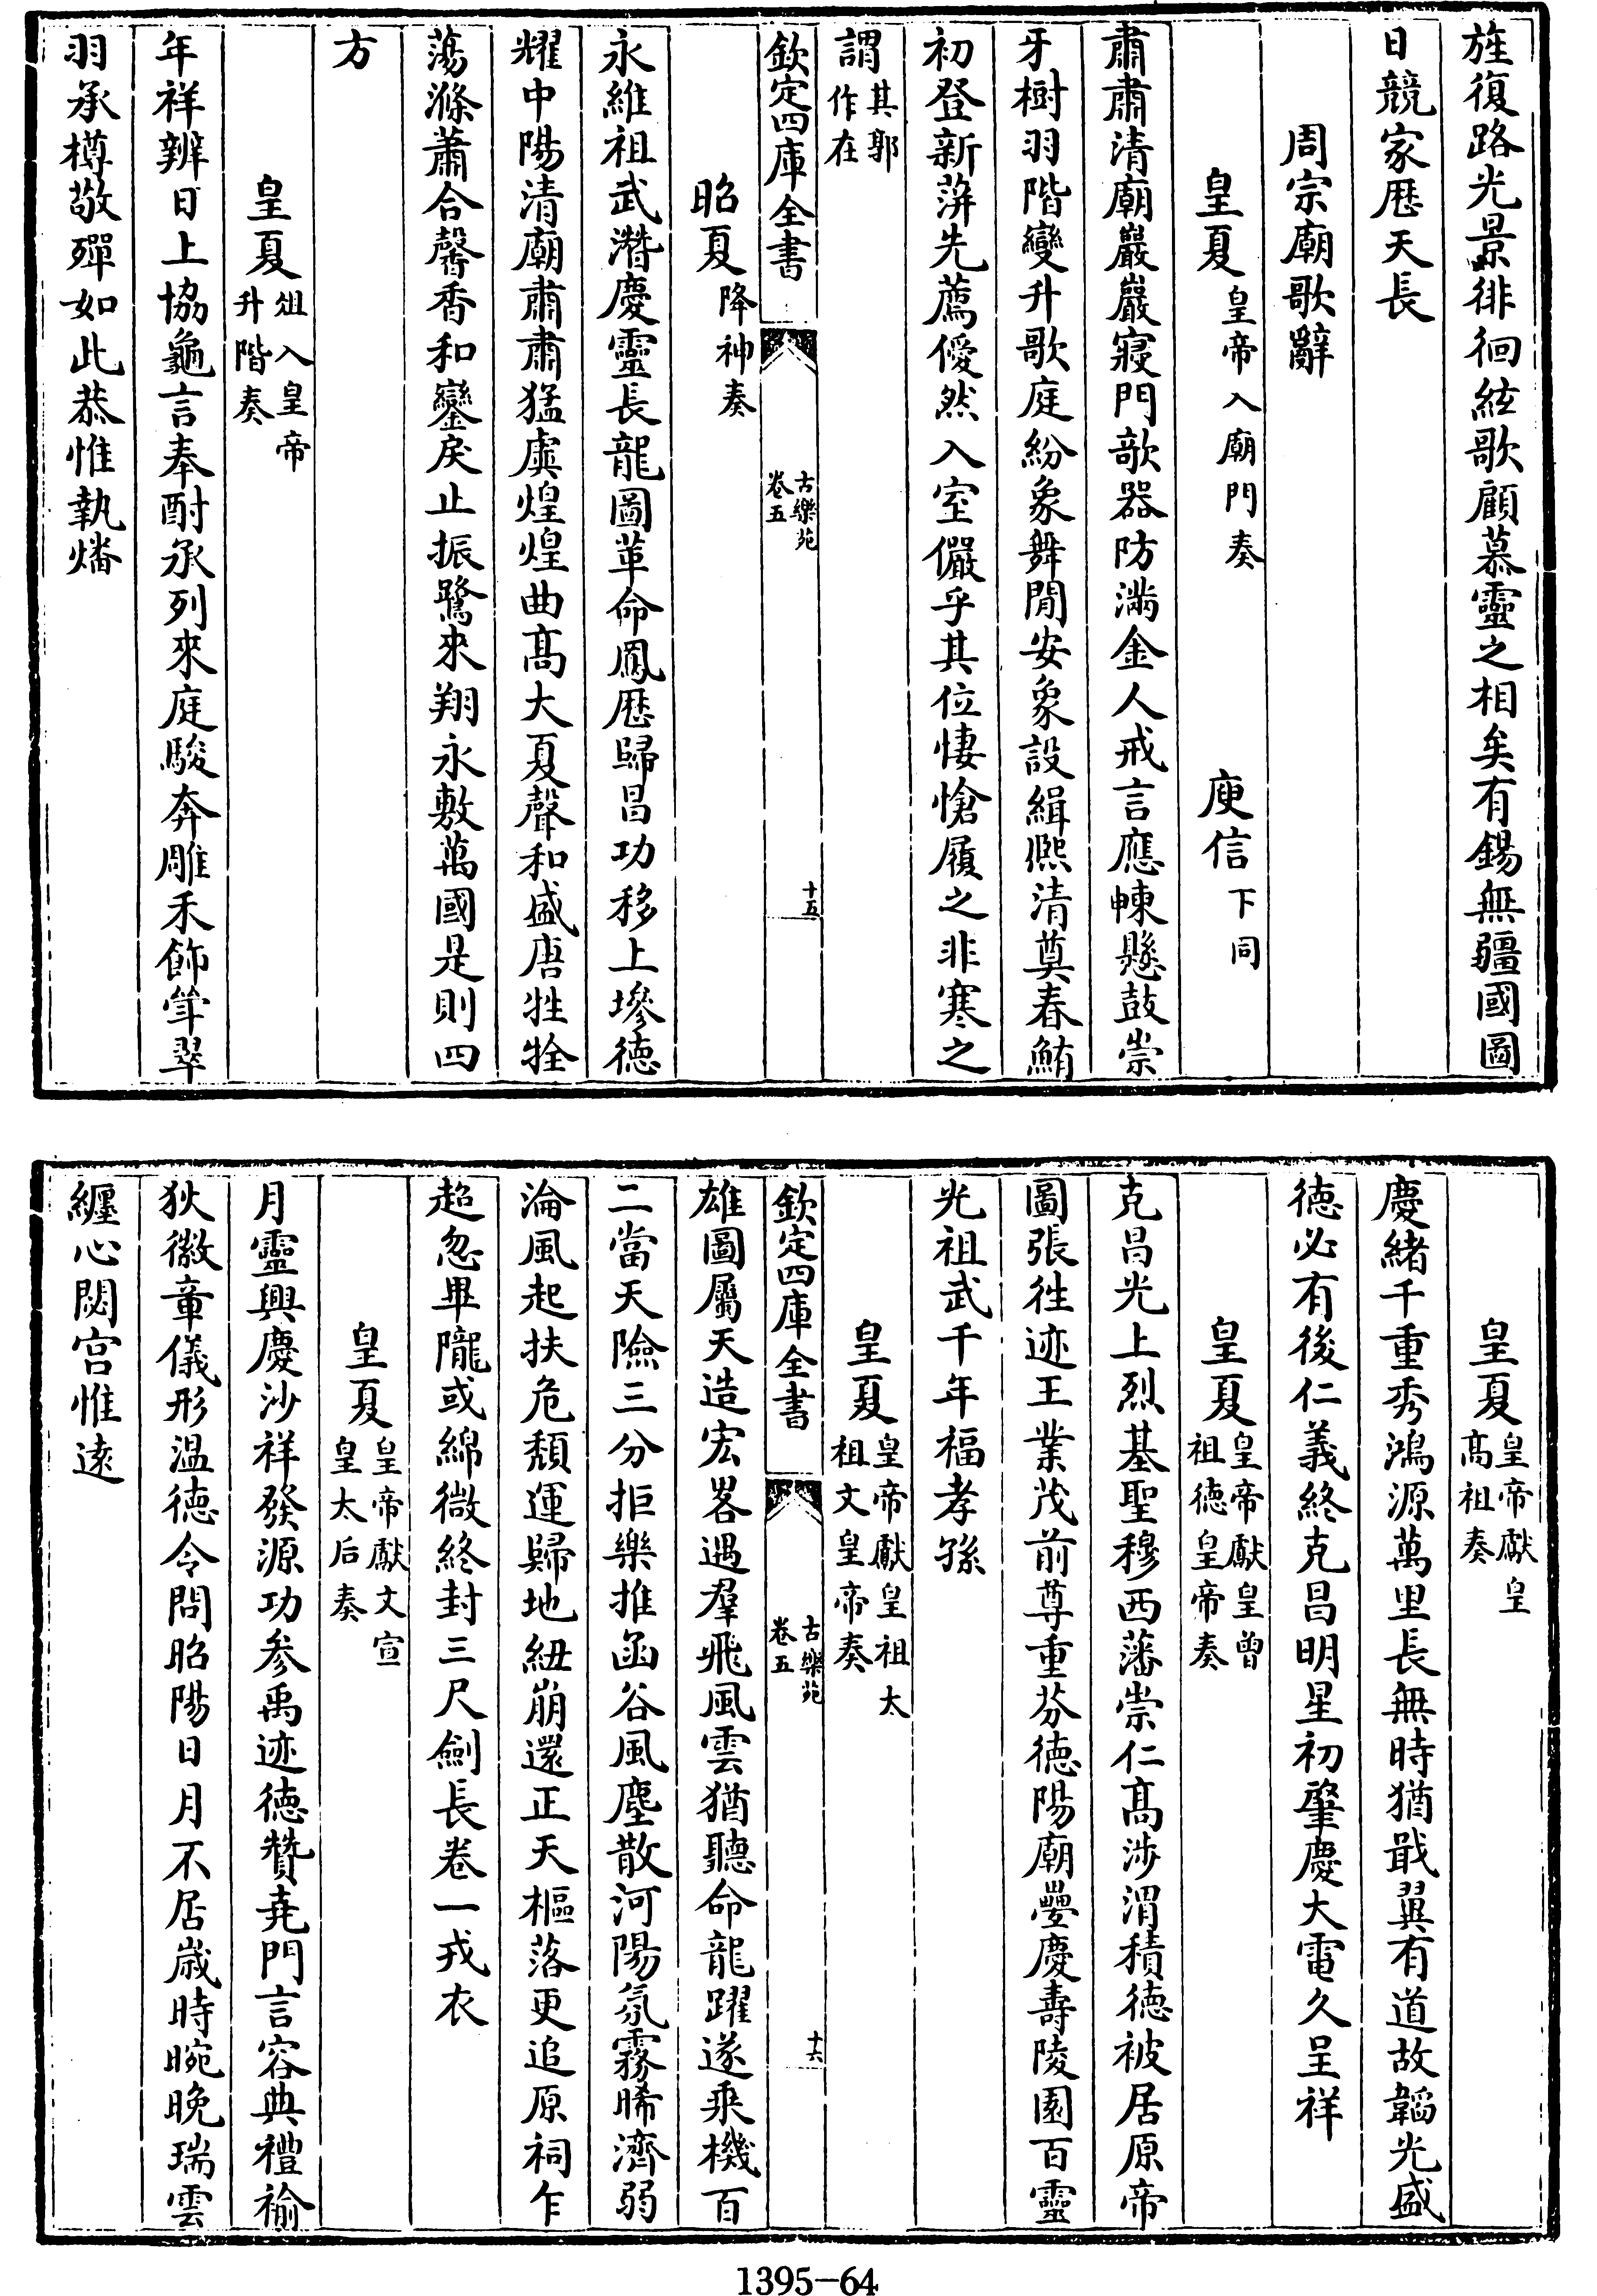 旌復路光景徘徊絃歌顧慕靈之相矣有錫無疆國圖
日競家厯天長
周宗廟歌辭
皇夏皇帝入廟門奏 庾信下同
肅肅清廟巖巖寢門欹器防滿金人戒言應㯥懸鼓崇
牙樹羽階變升歌庭紛象舞閒安象設緝熙清奠春鮪
初登新蓱先薦僾然入室儼乎其位悽愴履之非寒之
謂其郭作在
欽定四庫全書 古樂苑卷五 十五
昭夏降神奏
永維祖武潛慶靈長龍圖革命鳳厯歸昌功移上墋德
耀中陽清廟肅肅猛虡煌煌曲髙大夏聲和盛唐牲牷
蕩滌蕭合馨香和鑾戾止振鷺來翔永敷萬國是則四
方
皇夏俎入皇帝升階奏
年祥辨日上協龜言奉酎承列來庭駿奔雕禾飾斝翠
羽承樽敬殫如此恭惟執燔
皇夏皇帝獻皇髙祖奏
慶緒千重秀鴻源萬里長無時猶戢翼有道故韜光盛
德必有後仁義終克昌明星初肇慶大電久呈祥
皇夏皇帝獻皇曾祖德皇帝奏
克昌光上烈基聖穆西藩崇仁髙涉渭積德被居原帝
圖張徃迹王業茂前尊重芬德陽廟疊慶壽陵園百靈
光祖武千年福孝孫
皇夏皇帝獻皇祖太祖文皇帝奏
欽定四庫全書 古樂苑卷五 十六
雄圖屬天造宏畧遇羣飛風雲猶聽命龍躍遂乗機百
二當天險三分拒樂推函谷風塵散河陽氛霧晞濟弱
淪風起扶危頹運歸地紐崩還正天樞落更追原祠乍
超忽畢隴或綿微終封三尺劍長卷一戎衣
皇夏皇帝獻文宣皇太后奏
月靈興慶沙祥發源功參禹迹德贊堯門言容典禮褕
狄徽章儀形温德令問昭陽日月不居嵗時晼晚瑞雲
纒心閟宫惟逺
1395-64